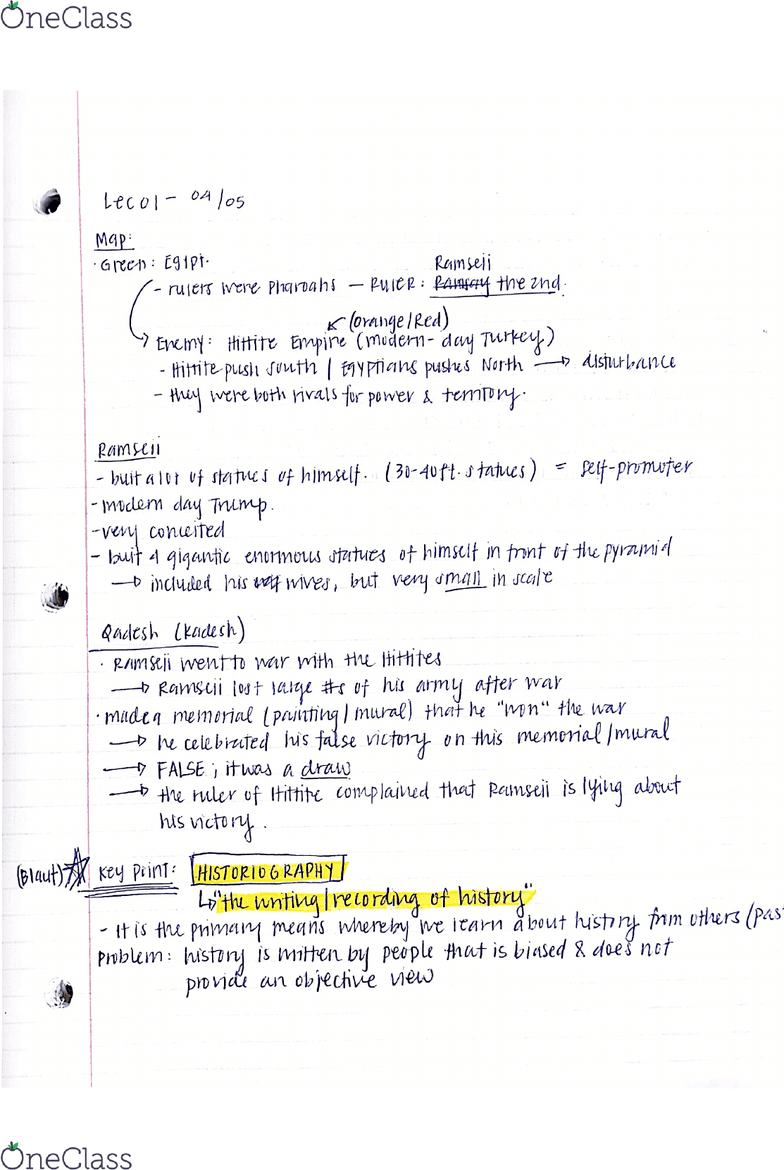 OneClass
Lec01 - 04/05
Map:
· Green: Egypt.
Ramseii
- rulers were Pharoahs — RULER: Ramsay the 2nd.
(orange/Red)
Enemy: Hittite Empire (modern-day Turkey)
- Hittite push south / Egyptians pushes North → disturbance
- they were both rivals for power & territory.
Ramseii
- built a lot of statues of himself. (30-40ft. statues) = self-promoter
- modern day Trump.
- very conceited
- built 4 gigantic enormous statues of himself in front of the pyramid
→ included his wives, but very small in scale
Qadesh (Kadesh)
· Ramseii went to war with the Hittites
→ Ramseii lost large #s of his army after war
· made a memorial (painting/mural) that he "won" the war
→ he celebrated his false victory on this memorial/mural
→ FALSE; it was a draw
→ the ruler of Hittite complained that Ramseii is lying about
his victory.
(Blaut) ☆ Key Point: HISTORIOGRAPHY
↳ "the writing/recording of history"
- It is the primary means whereby we learn about history from others (pas
Problem: history is written by people that is biased & does not
provide an objective view
OneClass